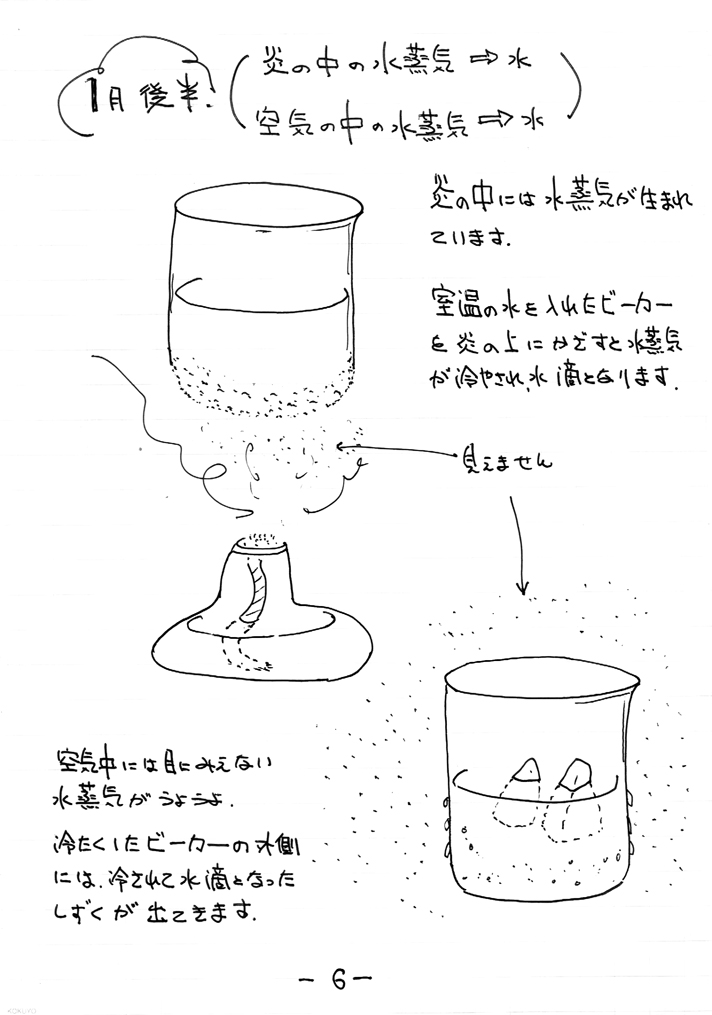 1月後半.
(炎の中の水蒸気 ⇒ 水
空気の中の水蒸気 ⇒ 水)
炎の中には水蒸気が生まれ
ています.
室温の水を入れたビーカー
を炎の上にかざすと水蒸気
が冷やされ、水滴となります.
見えません
空気中には目にみえない
水蒸気がうようよ.
冷たくしたビーカーの外側
には、冷されて水滴となった
しずくが出てきます.
- 6 -
KOKUYO